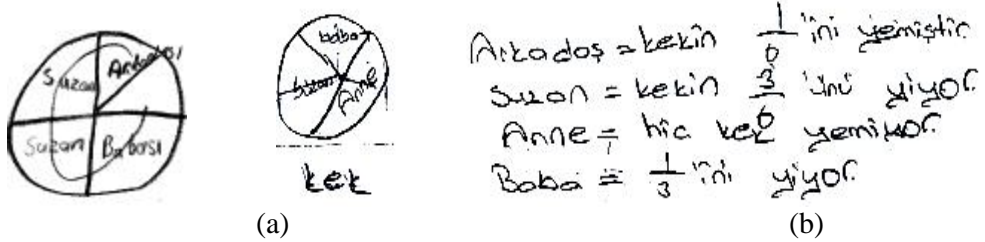 Suzan
Arkadaşı
Suzan
Babası
baba
suzan
Anne
kek
Arkadaş = kekin 1/6 'ini yemiştir.
Suzan = kekin 3/6 'ünü yiyor.
Anne = hiç kek yemiyor.
Baba = 1/3 'ini yiyor.
(a)
(b)